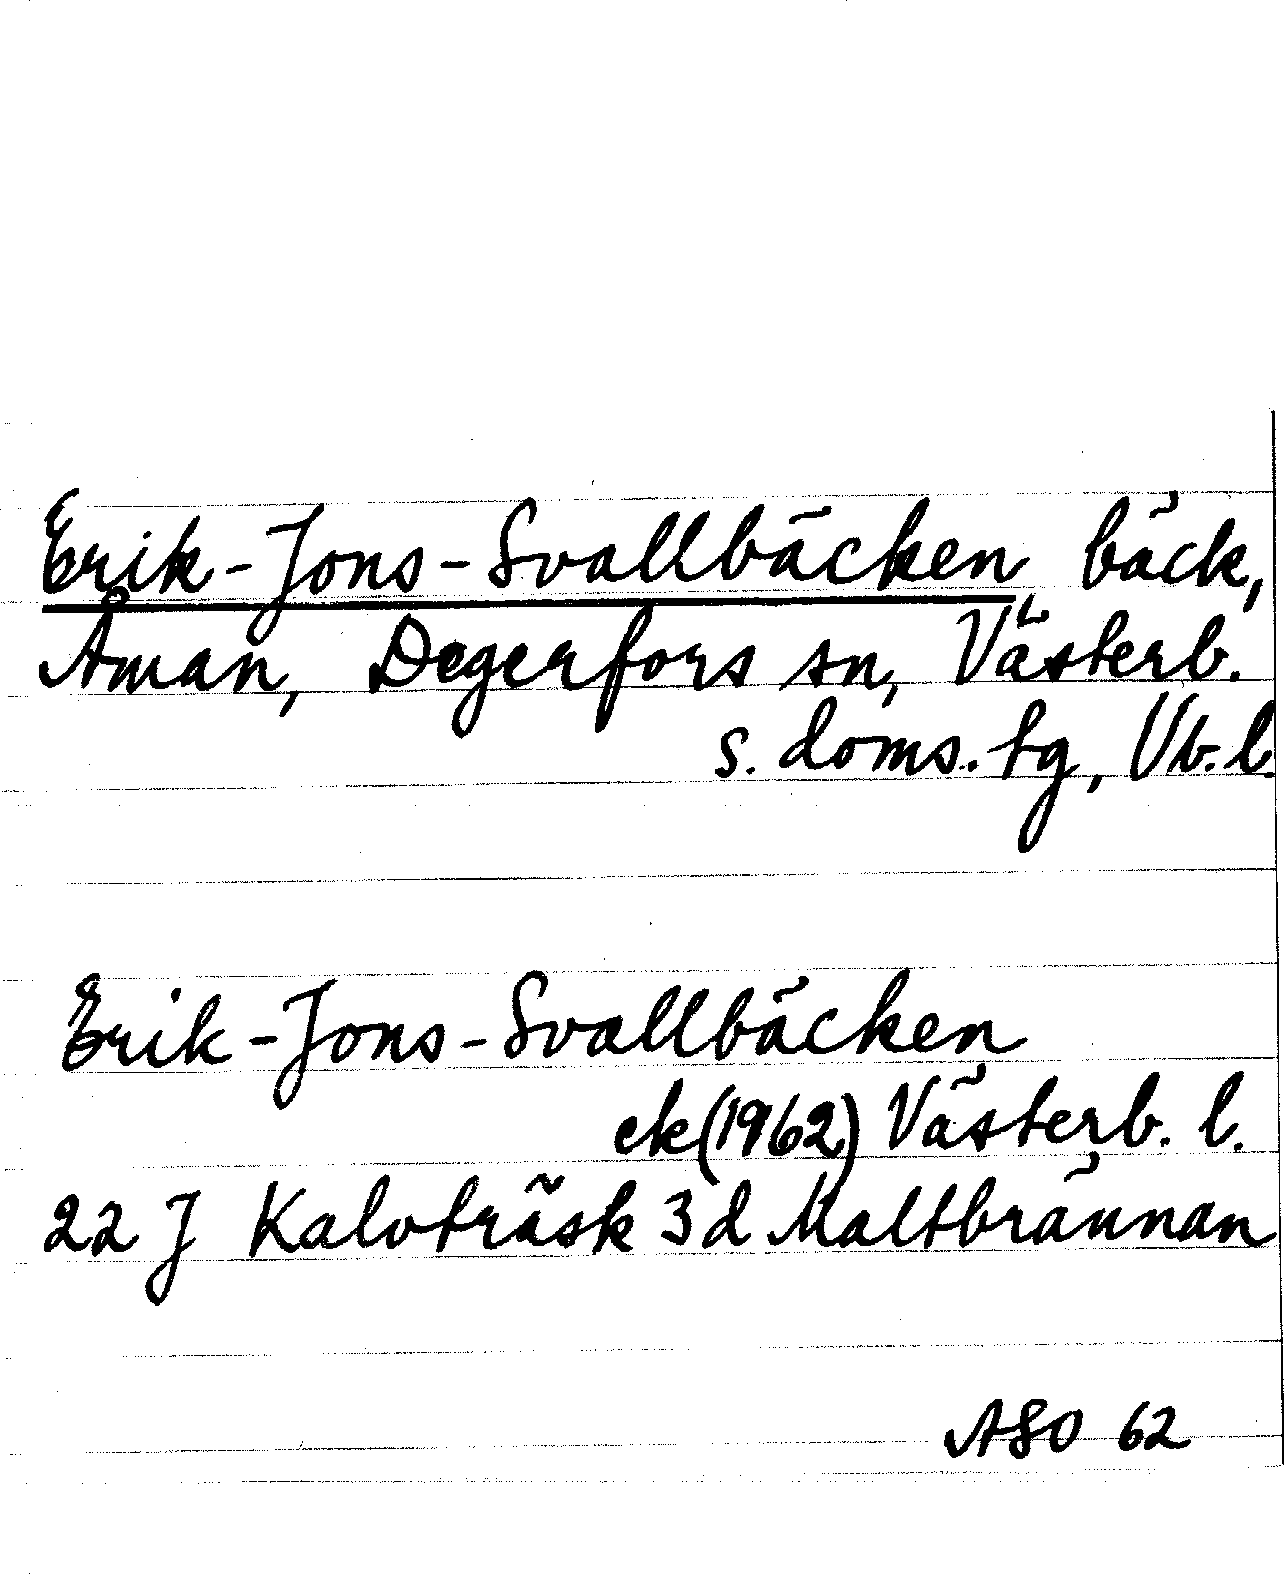 Erik-Jons-Svallbäcken, bäck,
Åman, Degerfors sn, Västerb.
s. doms. tg, Vb. l.
Erik-Jons-Svallbäcken
ek (1962) Västerb. l.
22 J Kalvträsk 3 d Maltbrännan
ASO 62